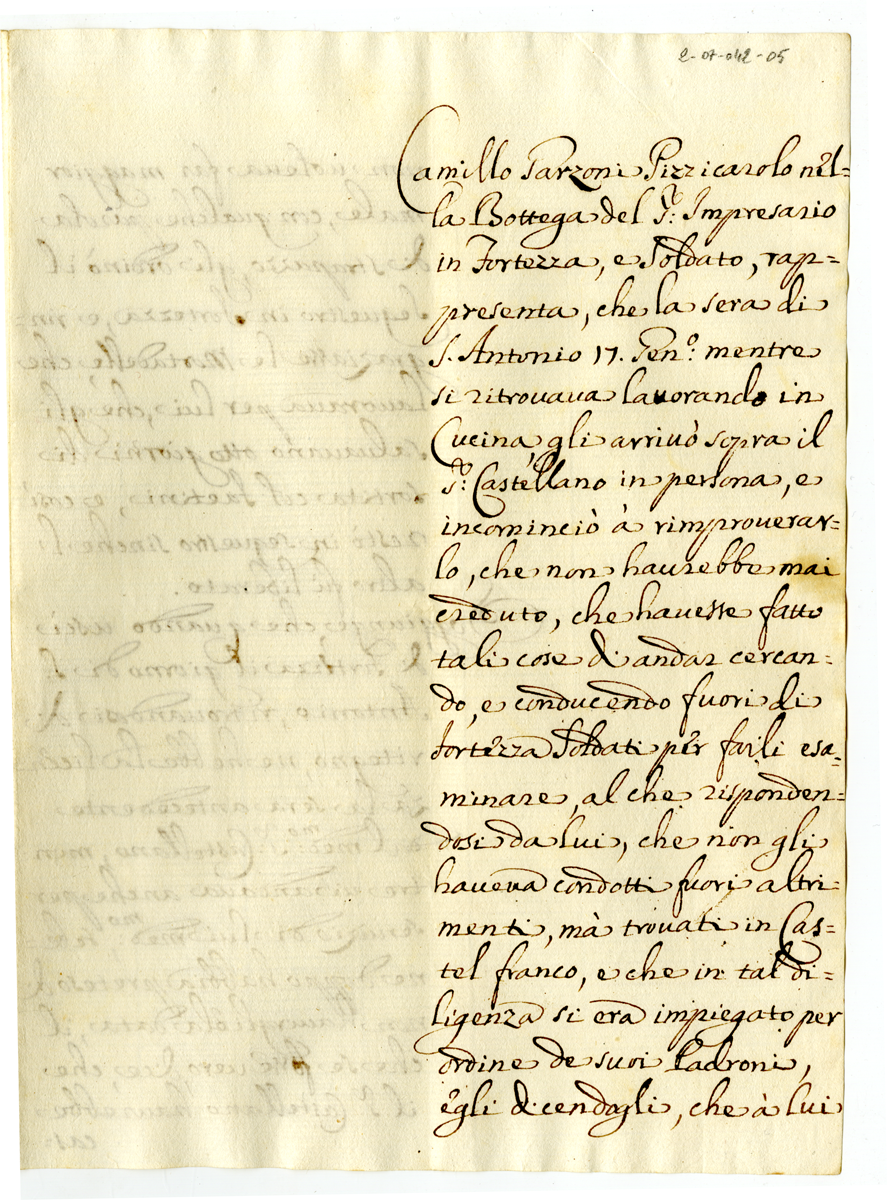 2-07-042-05
Camillo Parzoni Pizzicarolo nel=
la Bottega del Sr: Impresario
in Fortezza, e Soldato, rap=
presenta, che la sera di
S. Antonio 17. Genº: mentre
si ritrovava lavorando in
Cucina gli arrivò sopra il
Sr: Castellano in persona, e
incominciò à rimproverar=
lo, che non haurebbe mai
creduto, che havesse fatto
tali cose di andar cercan=
do, e conducendo fuori di
Fortezza Soldati per farli esa=
minare, al che risponden=
dosi da lui, che non gli
haveva condotti fuori altri=
menti, mà trovati in Cas=
tel franco, e che in tal di=
ligenza si era impiegato per
ordine de suoi Padroni,
egli dicendogli, che à lui